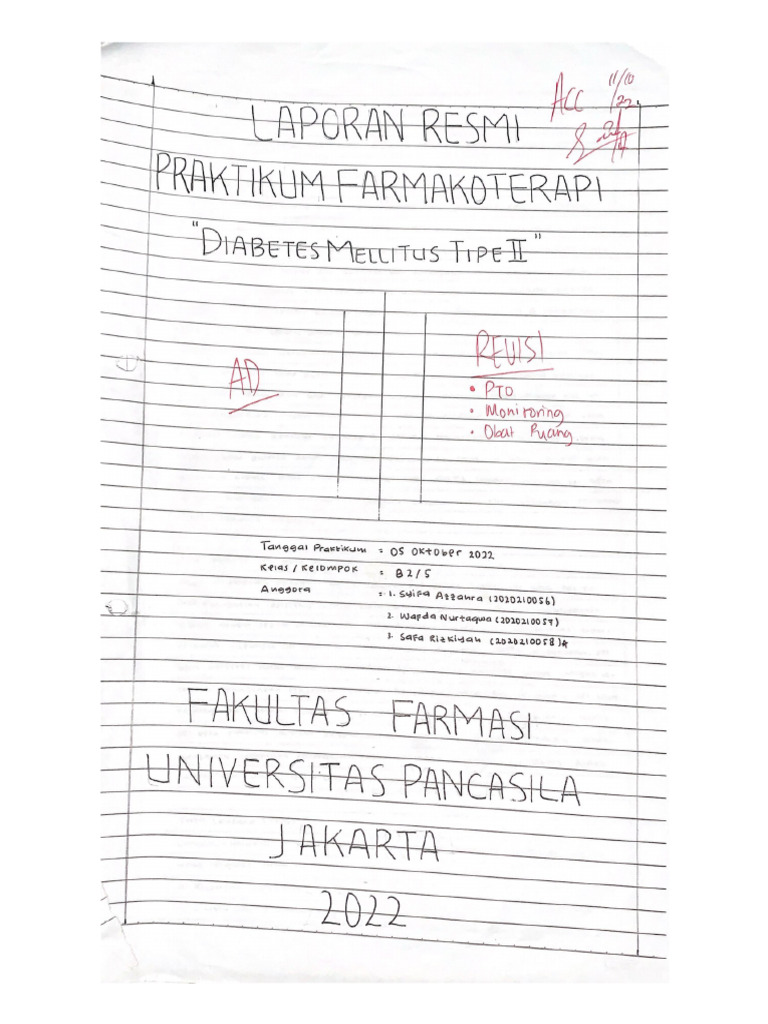 ACC 11/10
/22
LAPORAN RESMI
PRAKTIKUM FARMAKOTERAPI
"DIABETES MELLITUS TIPE II"
REVISI
AD
• PTO
• Monitoring
• Obat Ruang
Tanggal Praktikum : 05 Oktober 2022
Kelas / Kelompok : B2/5
Anggota : 1. Syifa Azzahra (2020210056)
2. Warda Nurtaqwa (2020210057)
3. Safa Rizkiyah (2020210058)
FAKULTAS FARMASI
UNIVERSITAS PANCASILA
JAKARTA
2022